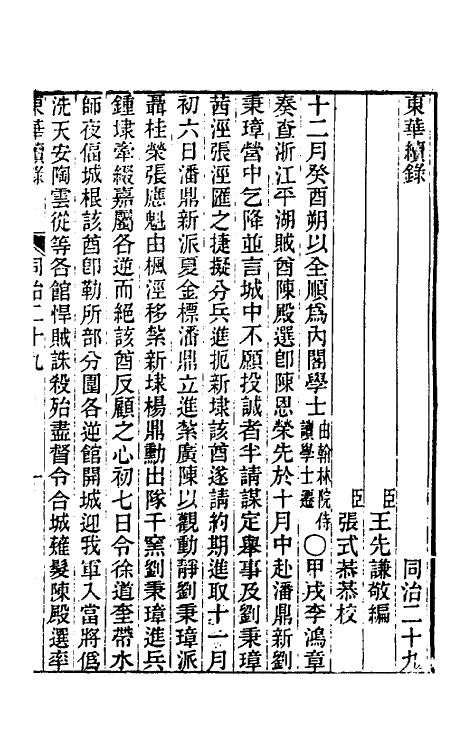 東華續錄
同治二十九
臣王先謙敬編
臣張式恭恭校
十二月癸酉朔以全順爲內閣學士由翰林院侍讀學士遷〇甲戌李鴻章
奏查浙江平湖賊酋陳殿選卽陳恩榮先於十月中赴潘鼎新劉
秉璋營中乞降並言城中不願投誠者半請謀定舉事及劉秉璋
茜涇張涇匯之捷擬分兵進扼新埭該酋遂請約期進取十一月
初六日潘鼎新派夏金標潘鼎立進紮廣陳以觀動靜劉秉璋派
聶桂榮張應魁由楓涇移紮新埭楊鼎勳出隊千窯劉秉璋進兵
鍾埭牽綴嘉屬各逆而絕該酋反顧之心初七日令徐道奎帶水
師夜偪城根該酋卽勒所部分圍各逆館開城迎我軍入當將僞
洗天安陶雲從等各館悍賊誅殺殆盡督令合城薙髮陳殿選率
東華續錄
同治二十九
一